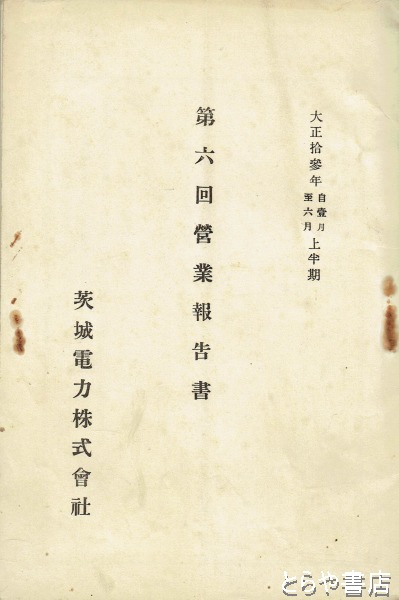 大正拾參年自壹月至六月上半期
第六回營業報告書
茨城電力株式會社
とらや書店